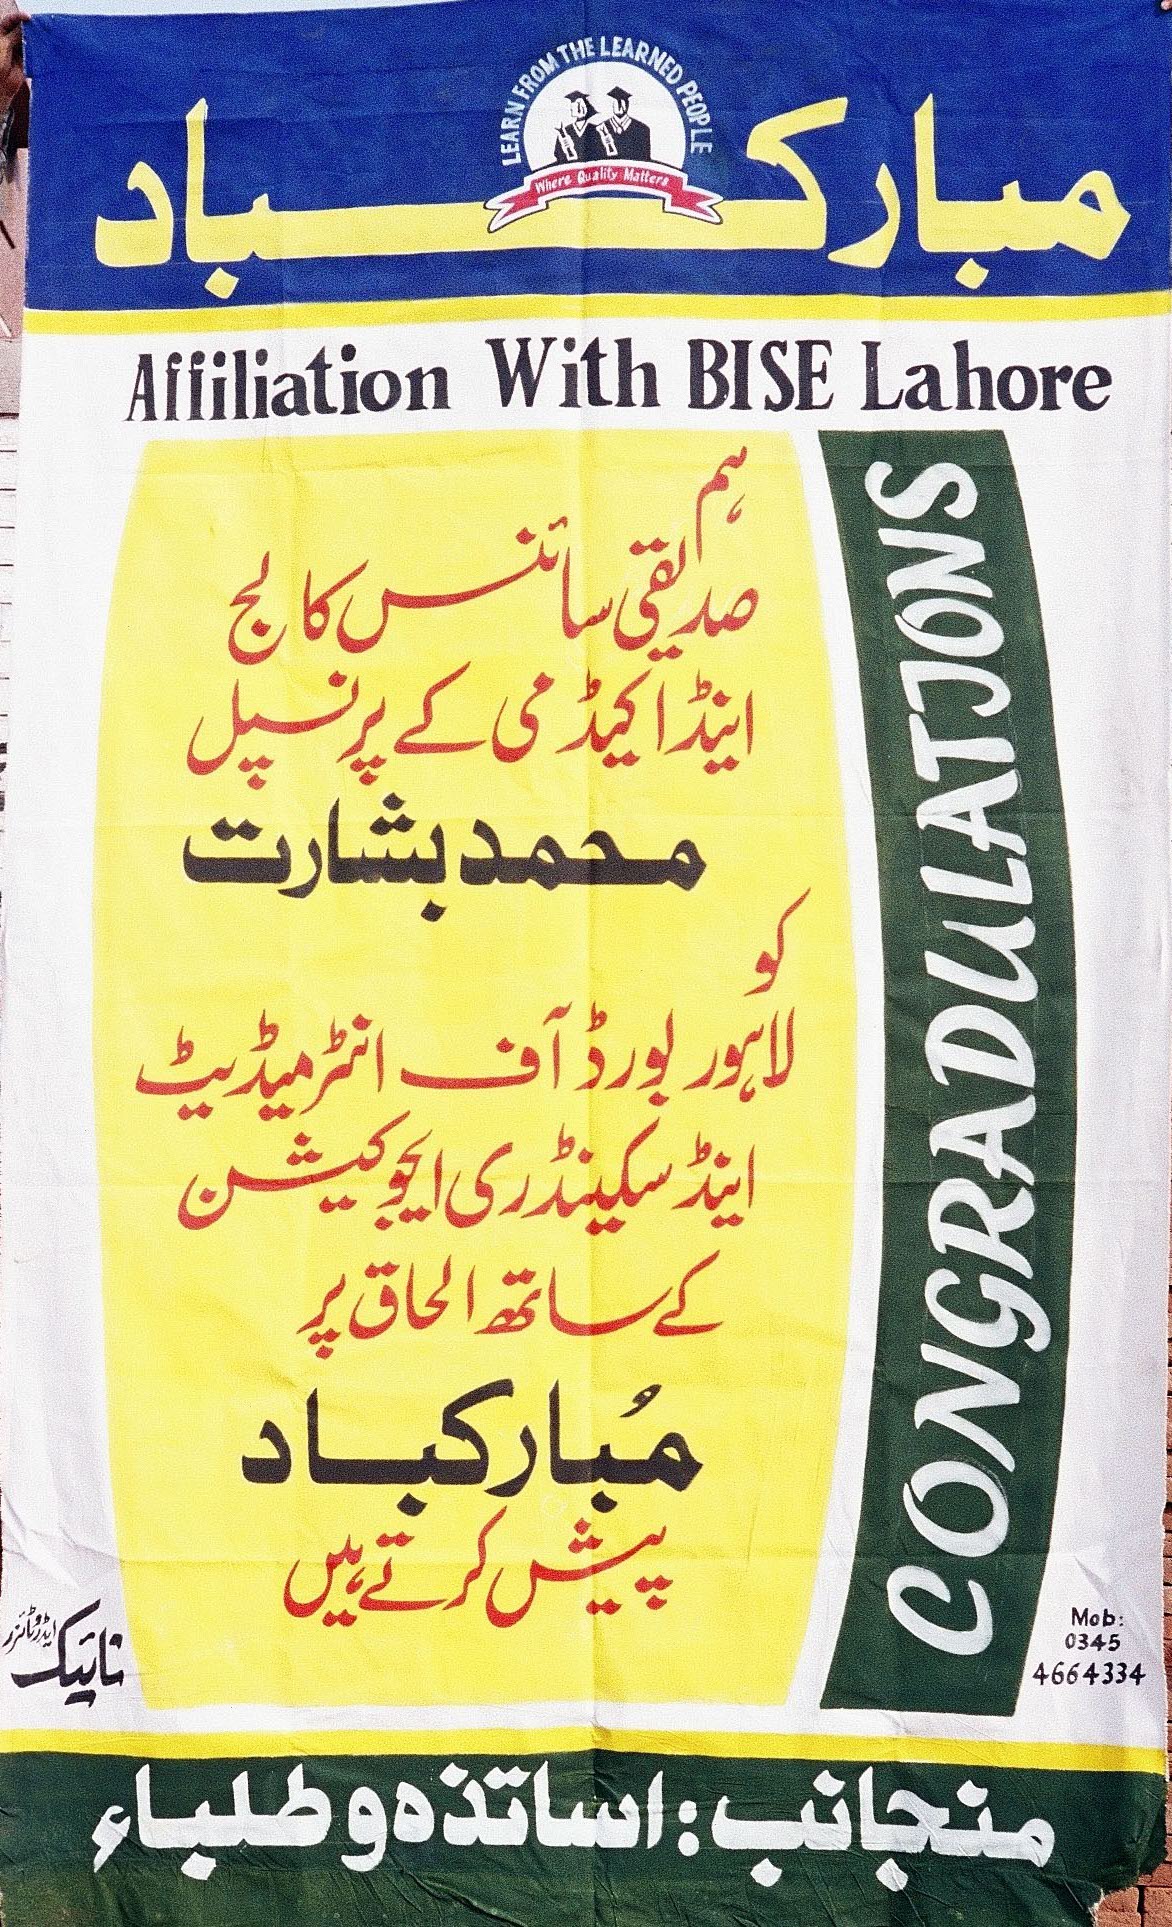 LEARN FROM THE LEARNED PEOPLE
Where Quality Matters
مبارکباد
Affiliation With BISE Lahore
ہم
صدیقی سائنس کالج
اینڈ اکیڈمی کے پرنسپل
محمد بشارت
کو
لاہور بورڈ آف انٹرمیڈیٹ
اینڈ سکینڈری ایجوکیشن
کے ساتھ الحاق پر
مُبارکباد
پیش کرتے ہیں
CONGRADULATIONS
نائیک ایڈورٹائزر
Mob:
0345
4664334
منجانب: اساتذہ و طلباء